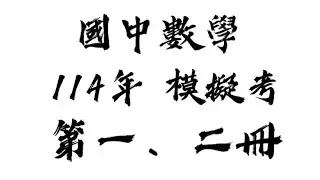 國中數學
114年 模擬考
第一、二冊